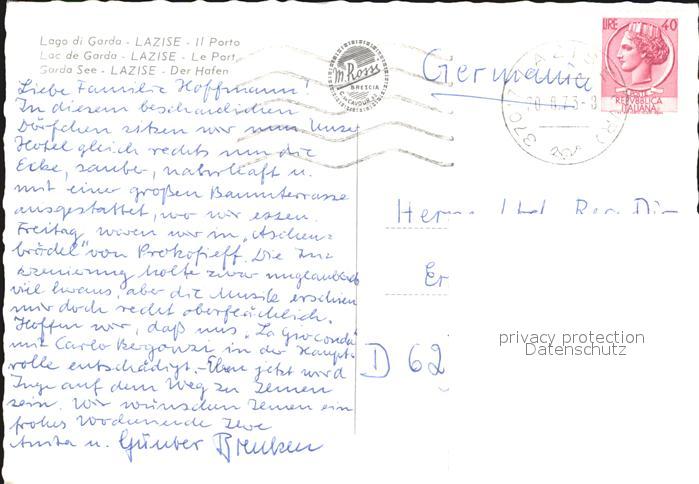 Lago di Garda - LAZISE - Il Porto
Lac de Garda - LAZISE - Le Port
Garda See - LAZISE - Der Hafen
Liebe Familie Hoffmann!
In diesem beschaulichen
Dörfchen sitzen wir nun. Unser
Hotel gleich rechts um die
Ecke, sauber, naturhaft u.
mit einer großen Baumterrasse
ausgestattet, wo wir essen.
Freitag waren wir in „Aschen-
brödel" von Prokofieff. Die In-
szenierung holte zwar unglaublich
viel heraus, aber die Musik erschien
mir doch recht oberflächlich.
Hoffen wir, daß uns „La Gioconda"
mit Carlo Bergonzi in der Haupt-
rolle entschädigt. - Eben jetzt wird
Inge auf dem Weg zu Ihnen
sein. Wir wünschen Ihnen ein
frohes Wochenende Ihre
Anita u. Günter
m. Rossi
BRESCIA
Germania
LIRE 40
POSTE
REPVBBLICA
ITALIANA
Herrn Und
Er
D 62
privacy protection
Datenschutz